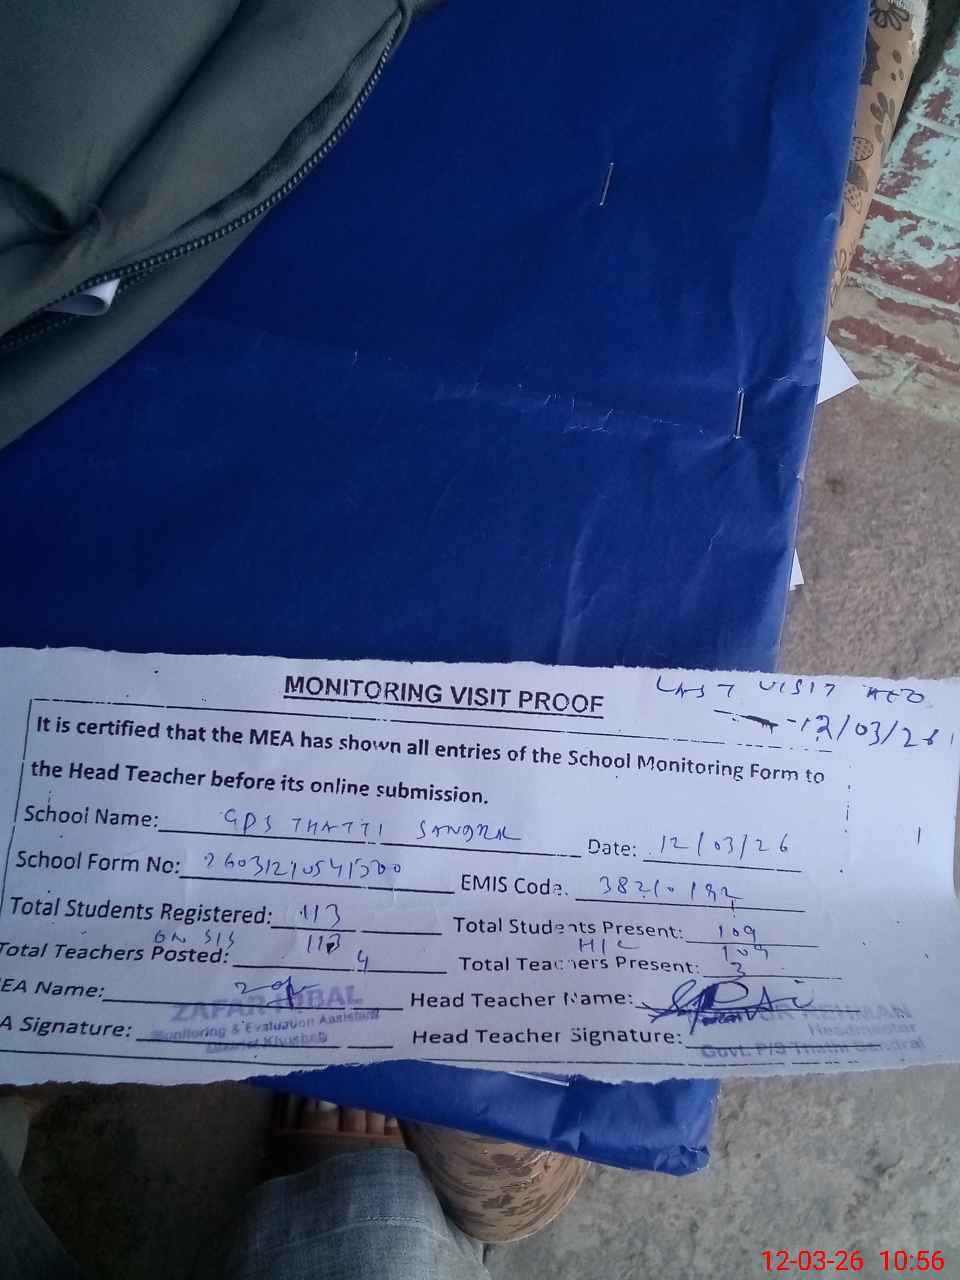 MONITORING VISIT PROOF
LAST VISIT AEO
12/03/26
It is certified that the MEA has shown all entries of the School Monitoring Form to
the Head Teacher before its online submission.
School Name: GPS THATTI SANDRAL Date: 12/03/26
School Form No: EMIS Code.
Total Students Registered: 113 Total Students Present: 109
ON SIS 113 H/C 109
Total Teachers Posted: 4 Total Teachers Present: 3
EA Name: Head Teacher Name:
ZAFAR IQBAL REHMAN
A Signature: Head Teacher Signature:
Monitoring & Evaluation Assistant Headmaster
District Khushab Govt. P/S Thathi Sandral
12-03-26 10:56